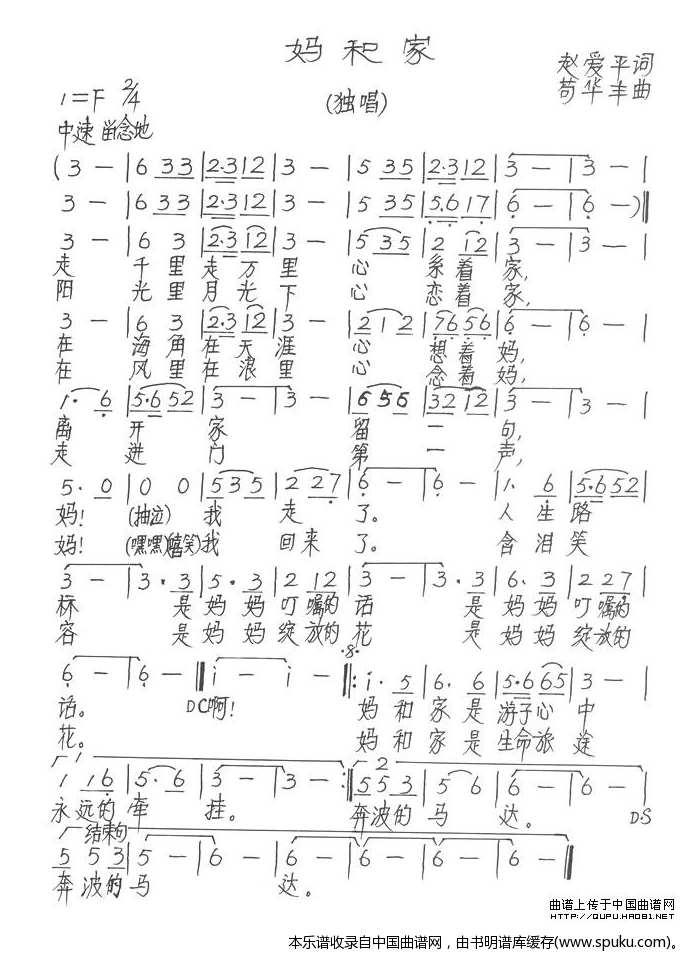 妈和家
赵爱平词
1=F 2/4
(独唱)
苟华丰曲
中速 留念地
(3 — | 6 33 | 2·3 12 | 3 — | 5 35 | 2·3 12 | 3 — | 3 — |
3 — | 6 33 | 2·3 12 | 3 — | 5 35 | 5·6 17 | 6 — | 6 —)‖
3 — | 6 3 | 2·3 12 | 3 — | 5 35 | 2 12 | 3 — | 3 — |
走 千里走万里 心 系着家,
阳 光里月光下 心 恋着家,
3 — | 6 3 | 2·3 12 | 3 — | 2 1 2 | 76 56 | 6 — | 6 — |
在 海角在天涯 心 想着妈,
在 风里在浪里 心 念着妈,
1· 6 | 5·6 52 | 3 — | 3 — | 6 56 | 32 12 | 3 — | 3 — |
离 开 家 留 一 句,
走 进 门 第 一 声,
5· 0 | 0 0 | 5 3 5 | 2 27 | 6 — | 6 — | 1· 6 | 5·6 52 |
妈! (抽泣) 我 走 了。 人生路
妈! (嘿嘿)(嘻笑)我 回来了。 含泪笑
3 — | 3· 3 | 5· 3 | 2 12 | 3 — | 3· 3 | 6· 3 | 2 27 |
标 是妈妈叮嘱的话 是妈妈叮嘱的
容 是妈妈绽放的花 是妈妈绽放的
6 — | 6 — ‖ i — | i — ‖: i· 5 | 6· 6 | 5·6 65 | 3 — |
话。 DC啊! 妈和家是游子心中
花。 妈和家是生命旅途
1
2
1 16 | 5· 6 | 3 — | 3 — :‖ 5 5 3 | 5 6 | 6 — | 6 — |
永远的牵 挂。 奔波的马 达。 D·S
结束句
5 5 3 | 5 — | 6 — | 6 — | 6 — | 6 — | 6 — ‖
奔波的马 达。
曲谱上传于中国曲谱网
HTTP://QUPU.HAO81.NET
本乐谱收录自中国曲谱网，由书明谱库缓存(www.spuku.com)。